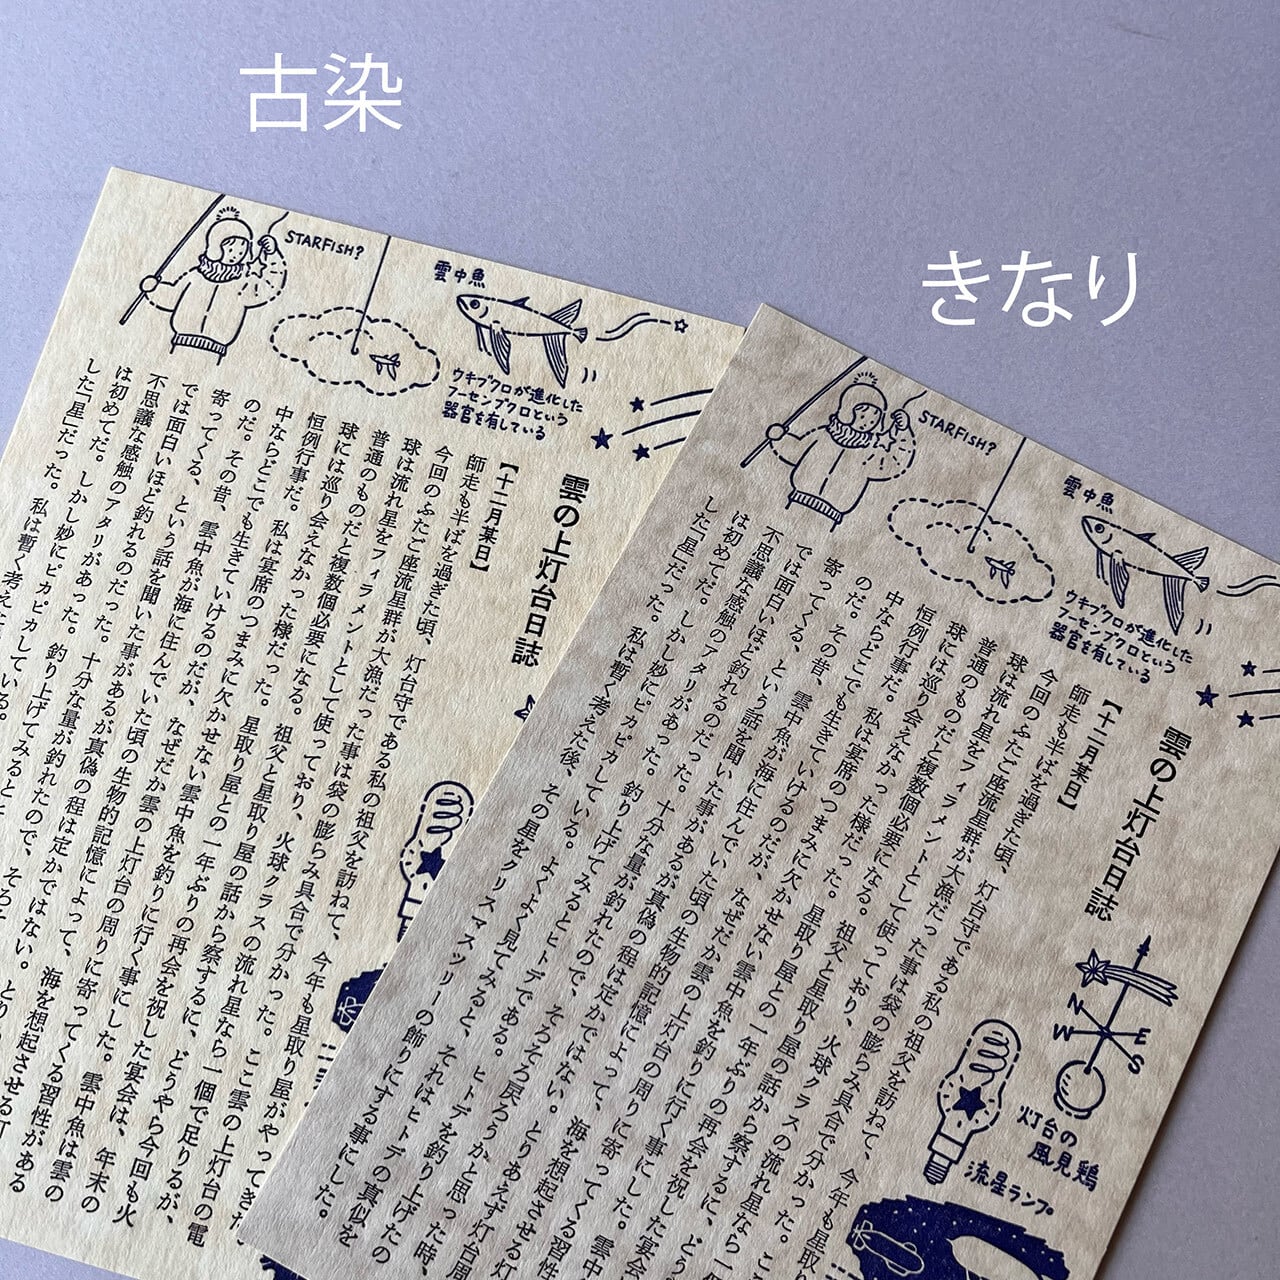 古染
きなり
STARFISH?
雲中魚
ウキブクロが進化した
フーセンブクロという
器官を有している
雲の上灯台日誌
【十二月某日】
師走も半ばを過ぎた頃、灯台守である私の祖父を訪ねて、今年も星取り屋がやってきた
今回のふたご座流星群が大漁だった事は袋の膨らみ具合で分かった。ここ雲の上灯台の電
球は流れ星をフィラメントとして使っており、火球クラスの流れ星なら一個で足りるが、
普通のものだと複数個必要になる。祖父と星取り屋の話から察するに、どうやら今回も火
球には巡り会えなかった様だった。星取り屋との一年ぶりの再会を祝した宴会は、年末の
恒例行事だ。私は宴席のつまみに欠かせない雲中魚を釣りに行く事にした。雲中魚は雲の
中ならどこでも生きていけるのだが、なぜだか雲の上灯台の周りに寄ってくる習性がある
のだ。その昔、雲中魚が海に住んでいた頃の生物的記憶によって、海を想起させる灯
寄ってくる、という話を聞いた事があるが真偽の程は定かではない。とり
では面白いほど釣れるのだった。十分な量が釣れたので、そろそ
不思議な感触のアタリがあった。釣り上げてみると
は初めてだ。しかし妙にピカピカしている。
した「星」だった。私は暫く考えた
STARFISH?
雲中魚
ウキブクロが進化した
フーセンブクロという
器官を有している
雲の上灯台日誌
【十二月某日】
師走も半ばを過ぎた頃、灯台守である私の祖父を訪ねて、今年も星取り
今回のふたご座流星群が大漁だった事は袋の膨らみ具合で分かった。ここ
球は流れ星をフィラメントとして使っており、火球クラスの流れ星なら一個
普通のものだと複数個必要になる。祖父と星取り屋の話から察するに、どう
球には巡り会えなかった様だった。星取り屋との一年ぶりの再会を祝した宴会
恒例行事だ。私は宴席のつまみに欠かせない雲中魚を釣りに行く事にした。雲中
中ならどこでも生きていけるのだが、なぜだか雲の上灯台の周りに寄ってくる習性
のだ。その昔、雲中魚が海に住んでいた頃の生物的記憶によって、海を想起させる灯
寄ってくる、という話を聞いた事があるが真偽の程は定かではない。とりあえず灯台周
では面白いほど釣れるのだった。十分な量が釣れたので、そろそろ戻ろうかと思った時、
不思議な感触のアタリがあった。釣り上げてみるとヒトデである。ヒトデを釣り上げたの
は初めてだ。しかし妙にピカピカしている。よくよく見てみると、それはヒトデの真似を
した「星」だった。私は暫く考えた後、その星をクリスマスツリーの飾りにする事にした。
N
E
W
S
灯台の
風見鶏
流星ランプ